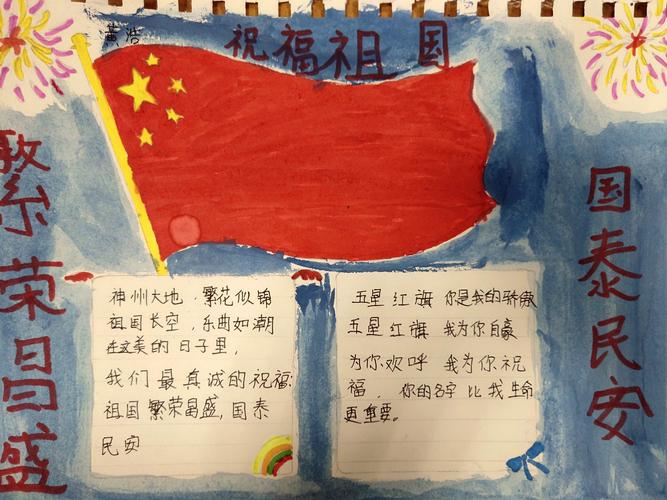 黄浩
祝福祖国
繁荣昌盛
国泰民安
神州大地,繁花似锦
祖国长空,乐曲如潮
在这美的日子里,
我们最真诚的祝福:
祖国繁荣昌盛,国泰
民安
五星红旗 你是我的骄傲
五星红旗 我为你自豪
为你欢呼 我为你祝
福, 你的名字 比我生命
更重要。